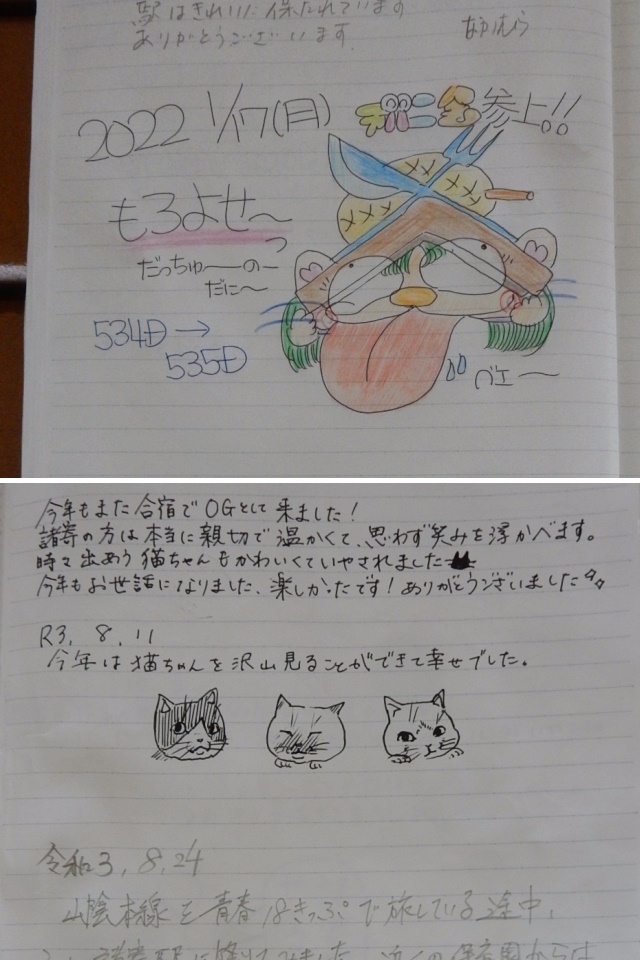 駅はきれいに保たれています
ありがとうございます
なかむら
2022 1/17(月)
参上!!
もろよせ〜っ
だっちゅーーのー
だに〜
534D→
535D
ベェー
今年もまた合宿でOGとして来ました!
諸寄の方は本当に親切で温かくて、思わず笑みを浮かべます。
時々出あう猫ちゃんもかわいくていやされました
今年もお世話になりました、楽しかったです!ありがとうございました
R3, 8, 11
今年は猫ちゃんを沢山見ることができて幸せでした。
令和3, 8, 24
山陰本線を青春18きっぷで旅している途中、
諸寄駅に降りてみました